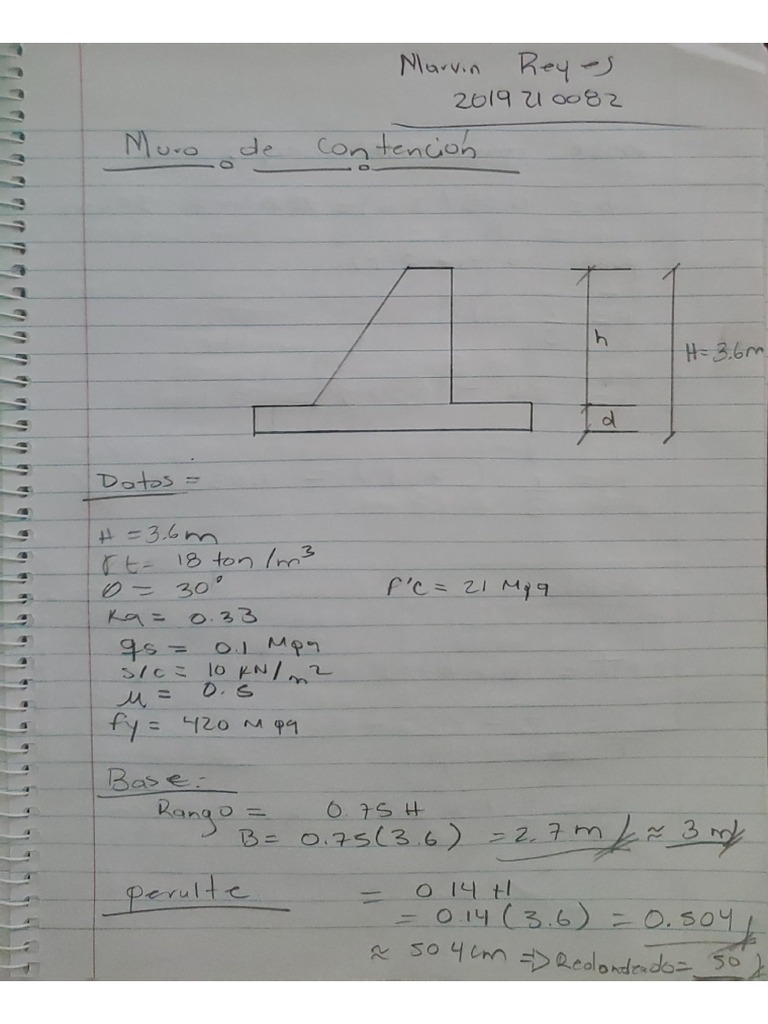 Marvin Reyes
2019210082
Muro de Contención
h
H= 3.6m
d
Datos =
H = 3.6m
γt= 18 ton/m³
Ø = 30°
f'c = 21 Mpa
Ka = 0.33
qs = 0.1 Mpa
s/c = 10 KN/m²
μ = 0.5
fy = 420 Mpa
Base:
Rango = 0.75H
B= 0.75(3.6) = 2.7m ≈ 3m
perulte = 0.14H
= 0.14(3.6) = 0.504
≈ 504cm => Redondeado= 50